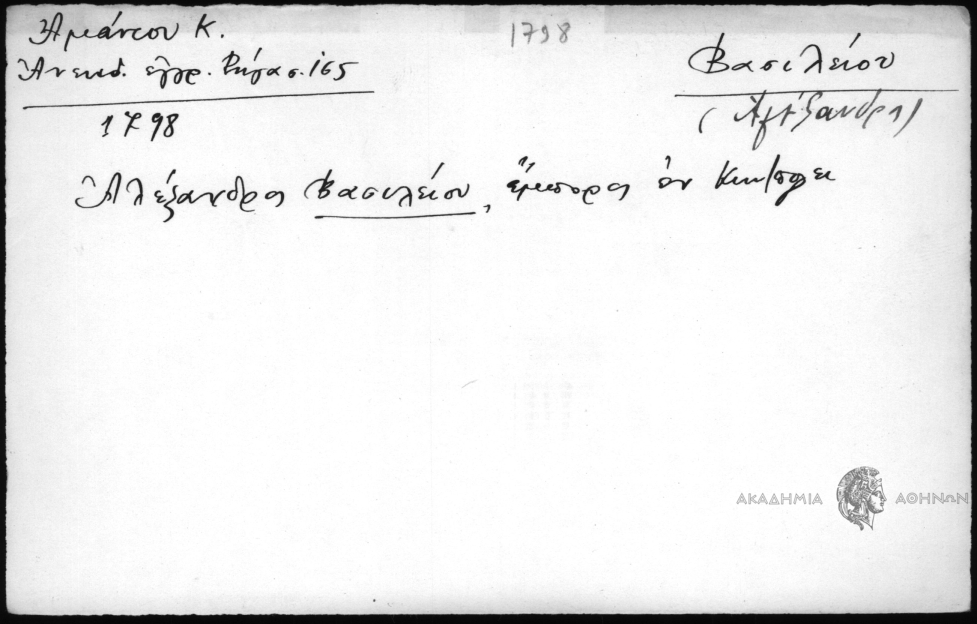 Ἀμάντου Κ.
Ἀνεκδ. ἔγγρ. Ρήγα σ. 165
1798
1798
Βασιλείου
(Ἀλέξανδρος)
Ἀλέξανδρος Βασιλείου, ἔμπορος ἐν Κων/πόλει
ΑΚΑΔΗΜΙΑ ΑΘΗΝΩΝ